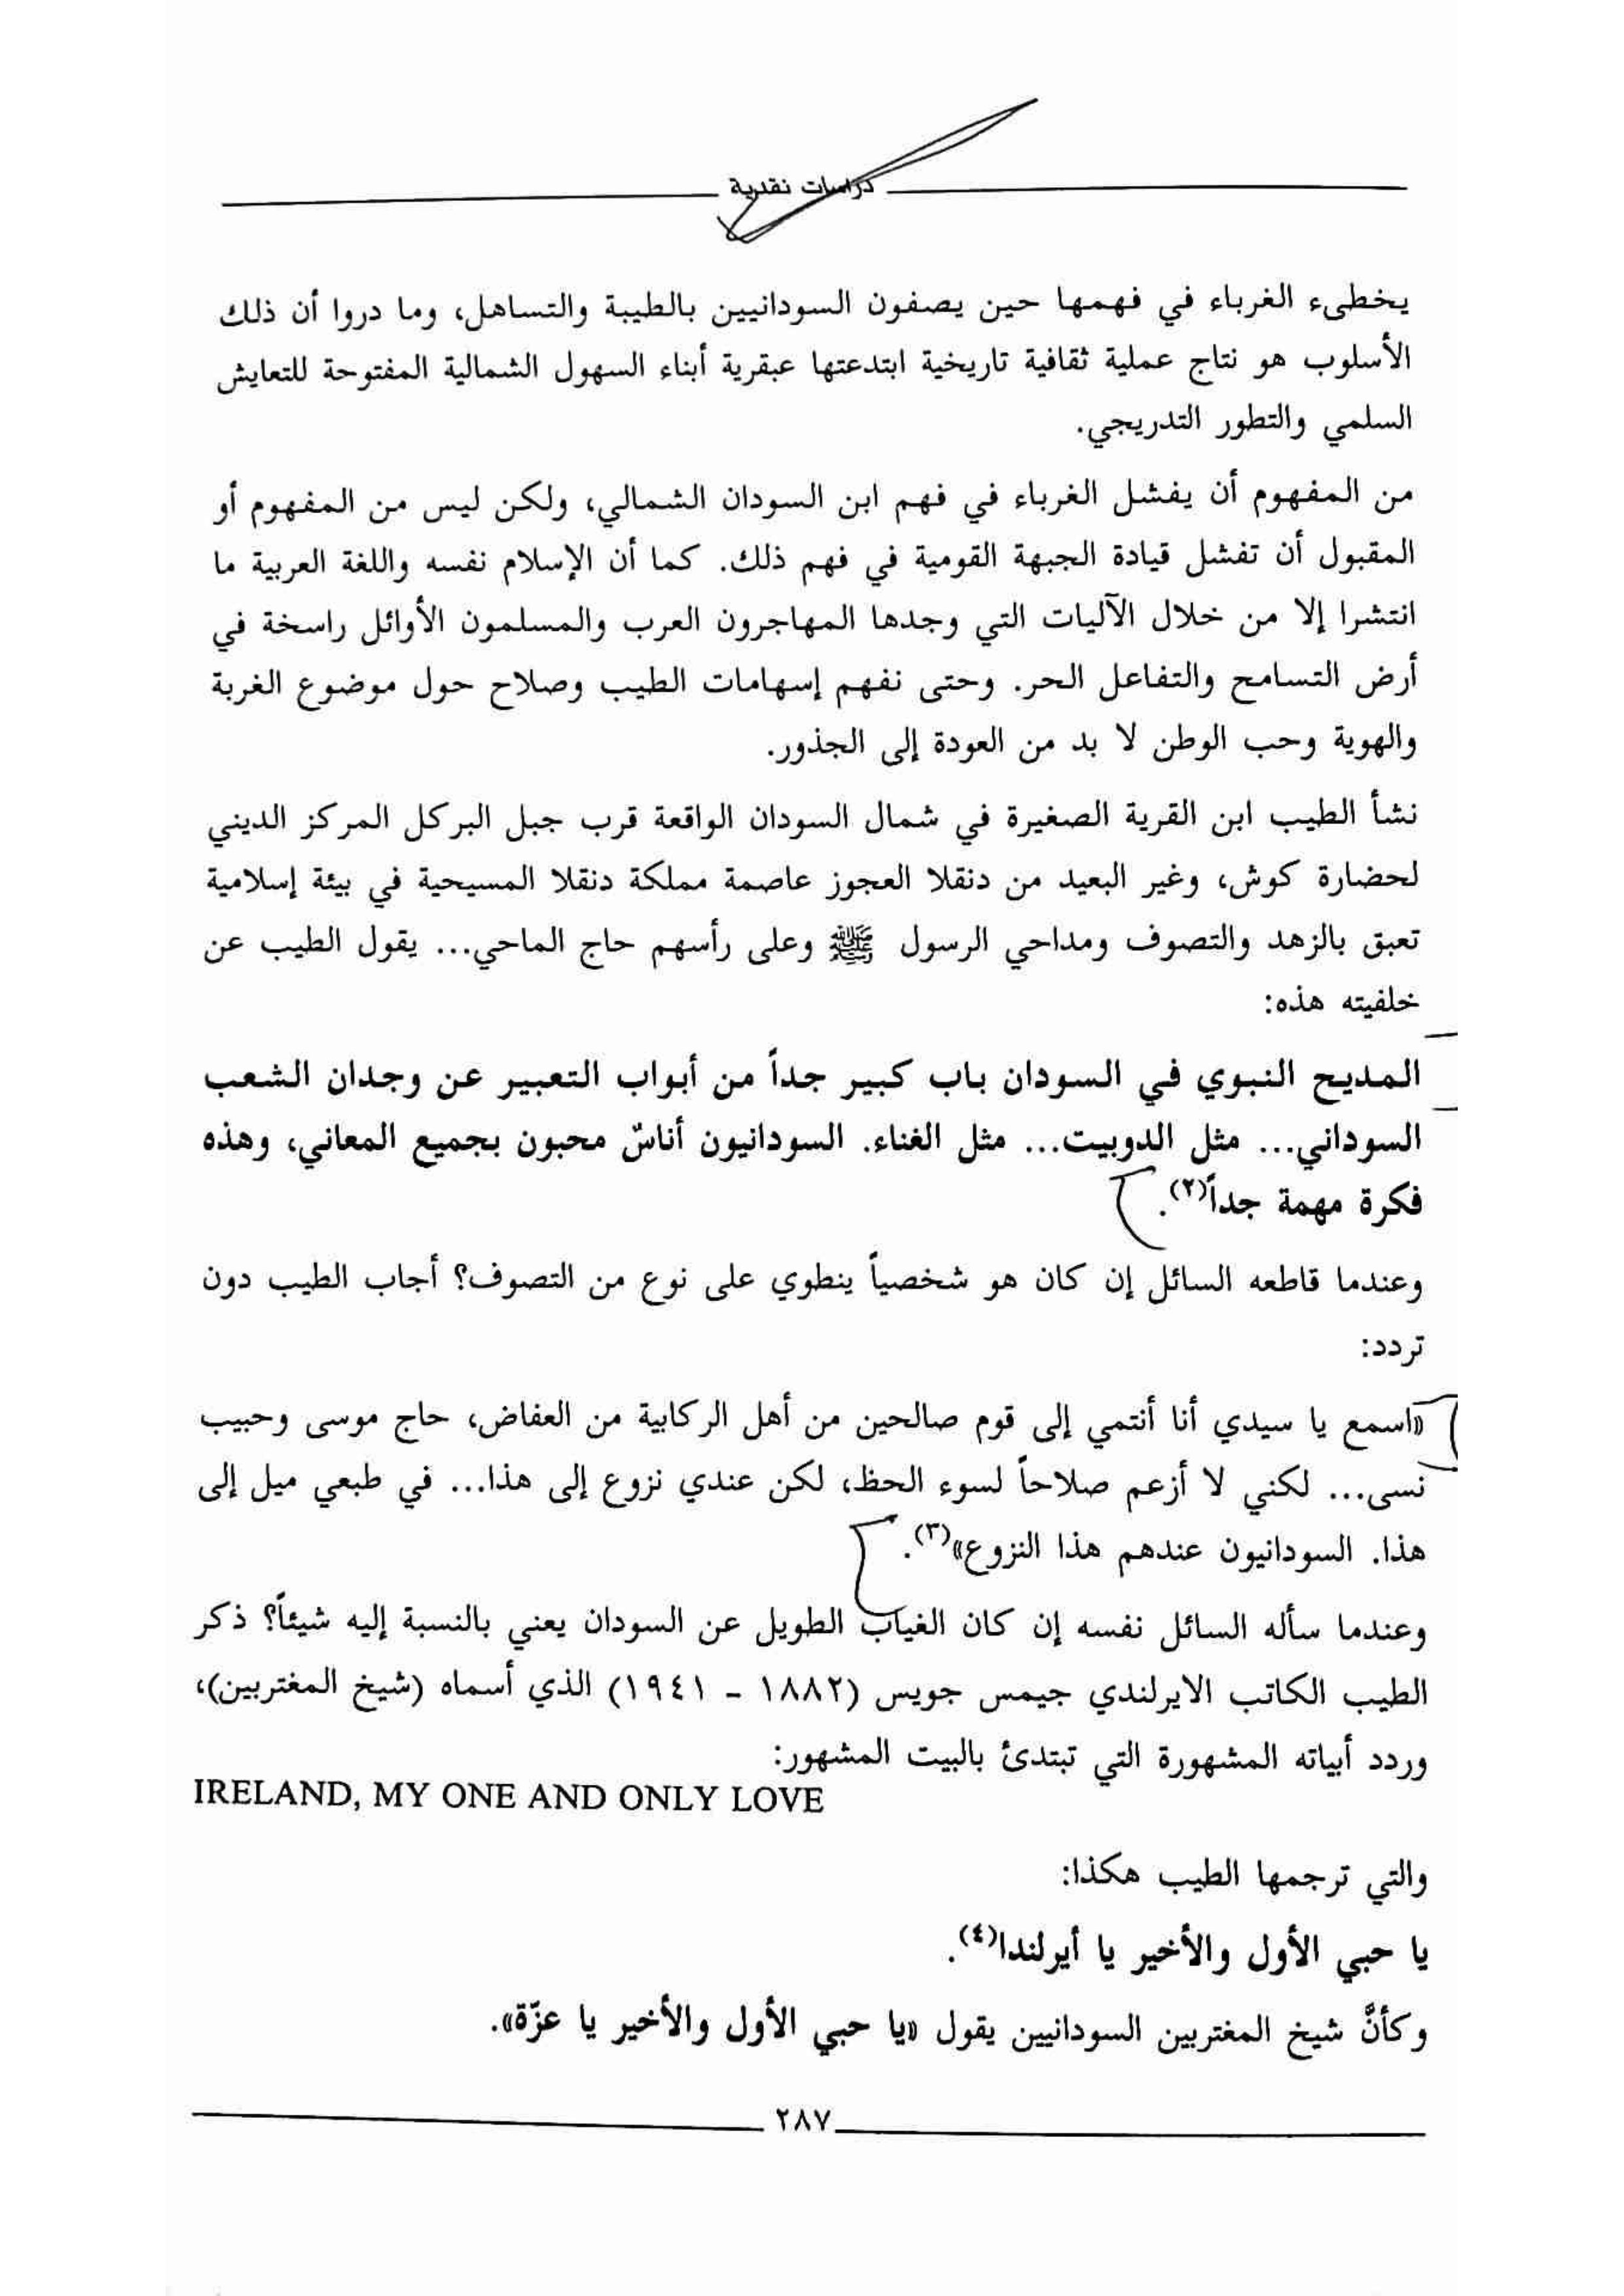 دراسات نقدية
يخطىء الغرباء في فهمها حين يصفون السودانيين بالطيبة والتساهل، وما دروا أن ذلك
الأسلوب هو نتاج عملية ثقافية تاريخية ابتدعتها عبقرية أبناء السهول الشمالية المفتوحة للتعايش
السلمي والتطور التدريجي.
من المفهوم أن يفشل الغرباء في فهم ابن السودان الشمالي، ولكن ليس من المفهوم أو
المقبول أن تفشل قيادة الجبهة القومية في فهم ذلك. كما أن الإسلام نفسه واللغة العربية ما
انتشرا إلا من خلال الآليات التي وجدها المهاجرون العرب والمسلمون الأوائل راسخة في
أرض التسامح والتفاعل الحر. وحتى نفهم إسهامات الطيب وصلاح حول موضوع الغربة
والهوية وحب الوطن لا بد من العودة إلى الجذور.
نشأ الطيب ابن القرية الصغيرة في شمال السودان الواقعة قرب جبل البركل المركز الديني
لحضارة كوش، وغير البعيد من دنقلا العجوز عاصمة مملكة دنقلا المسيحية في بيئة إسلامية
تعبق بالزهد والتصوف ومداحي الرسول ﷺ وعلى رأسهم حاج الماحي... يقول الطيب عن
خلفيته هذه:
المديح النبوي في السودان باب كبير جداً من أبواب التعبير عن وجدان الشعب
السوداني... مثل الدوبيت... مثل الغناء. السودانيون أناسٌ محبون بجميع المعاني، وهذه
فكرة مهمة جداً(٢).
وعندما قاطعه السائل إن كان هو شخصياً ينطوي على نوع من التصوف؟ أجاب الطيب دون
تردد:
«اسمع يا سيدي أنا أنتمي إلى قوم صالحين من أهل الركابية من العفاض، حاج موسى وحبيب
نسى... لكني لا أزعم صلاحاً لسوء الحظ، لكن عندي نزوع إلى هذا... في طبعي ميل إلى
هذا. السودانيون عندهم هذا النزوع»(٣).
وعندما سأله السائل نفسه إن كان الغياب الطويل عن السودان يعني بالنسبة إليه شيئاً؟ ذكر
الطيب الكاتب الايرلندي جيمس جويس (١٨٨٢ - ١٩٤١) الذي أسماه (شيخ المغتربين)،
وردد أبياته المشهورة التي تبتدئ بالبيت المشهور:
IRELAND, MY ONE AND ONLY LOVE
والتي ترجمها الطيب هكذا:
يا حبي الأول والأخير يا أيرلندا(٤).
وكأنَّ شيخ المغتربين السودانيين يقول «يا حبي الأول والأخير يا عزّة».
٢٨٧